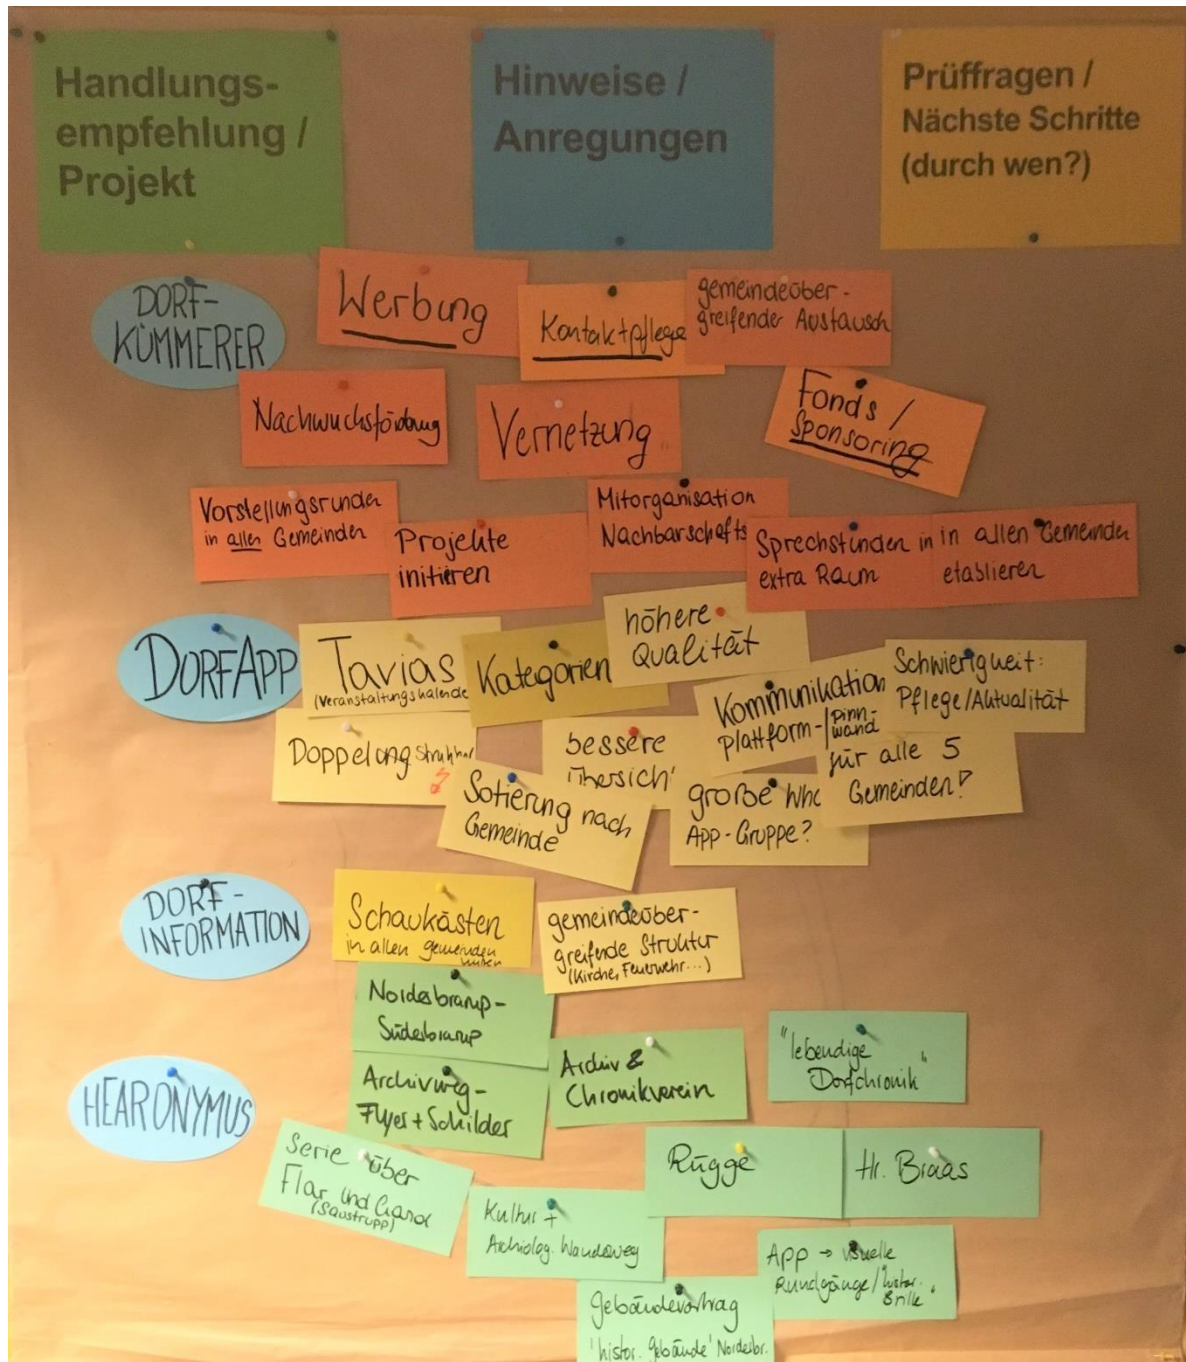 Handlungs-
empfehlung /
Projekt
Hinweise /
Anregungen
Prüffragen /
Nächste Schritte
(durch wen?)
DORF-
KÜMMERER
Werbung
Kontaktpflege
gemeindeüber-
greifender Austausch
Nachwuchsförderung
Vernetzung
Fonds /
Sponsoring
Vorstellungsrunden
in allen Gemeinden
Projekte
initiieren
Mitorganisation
Nachbarschafts
Sprechstunden in
extra Raum
in allen Gemeinden
etablieren
DORFAPP
Tavias
(Veranstaltungskalende
Kategorien
höhere
Qualität
Kommunikation
plattform-/pinn-
wand
Schwierigkeit:
Pflege/Aktualität
Doppelung
bessere
übersich
für alle 5
Gemeinden!
Sotierung nach
Gemeinde
große Wha
App-Gruppe?
DORF-
INFORMATION
Schaukästen
in allen gemeinden
gemeindeüber-
greifende Struktur
(Kirche, Feuerwehr...)
Norderbrarup-
Süderbrarup
HEARONYMUS
Archivweg-
Flyer + Schilder
Archiv &
Chronikverein
"lebendige
Dorfchronik"
Serie über
Flar und Garol
(Saustrupp)
Rügge
Hr. Braas
Kultur +
Archäolog. Wanderweg
App → visuelle
Rundgänge/histor.
Brille
Gebäudevortrag
'histor. Gebäude' Norderbr.